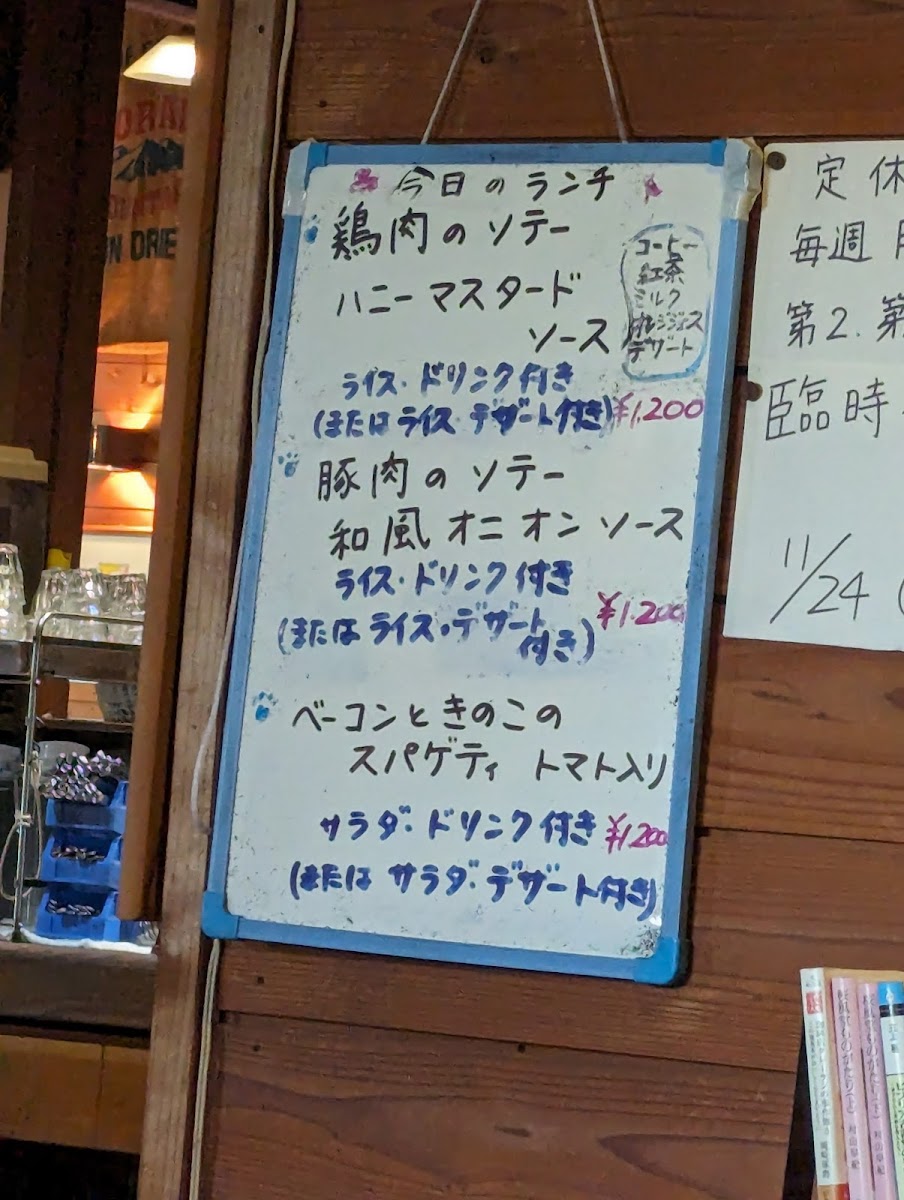 今日のランチ
鶏肉のソテー
ハニーマスタード
ソース
コーヒー
紅茶
ミルク
オレンジジュース
デザート
ライス・ドリンク付き
(またはライス・デザート付き)
¥1,200
豚肉のソテー
和風オニオンソース
ライス・ドリンク付き
(またはライス・デザート
付き)
¥1,200
ベーコンときのこの
スパゲティ トマト入り
サラダ・ドリンク付き
¥1,200
(またはサラダ・デザート付き)
定休
毎週
第2.第
臨時
11/24
ORN
N ORIE